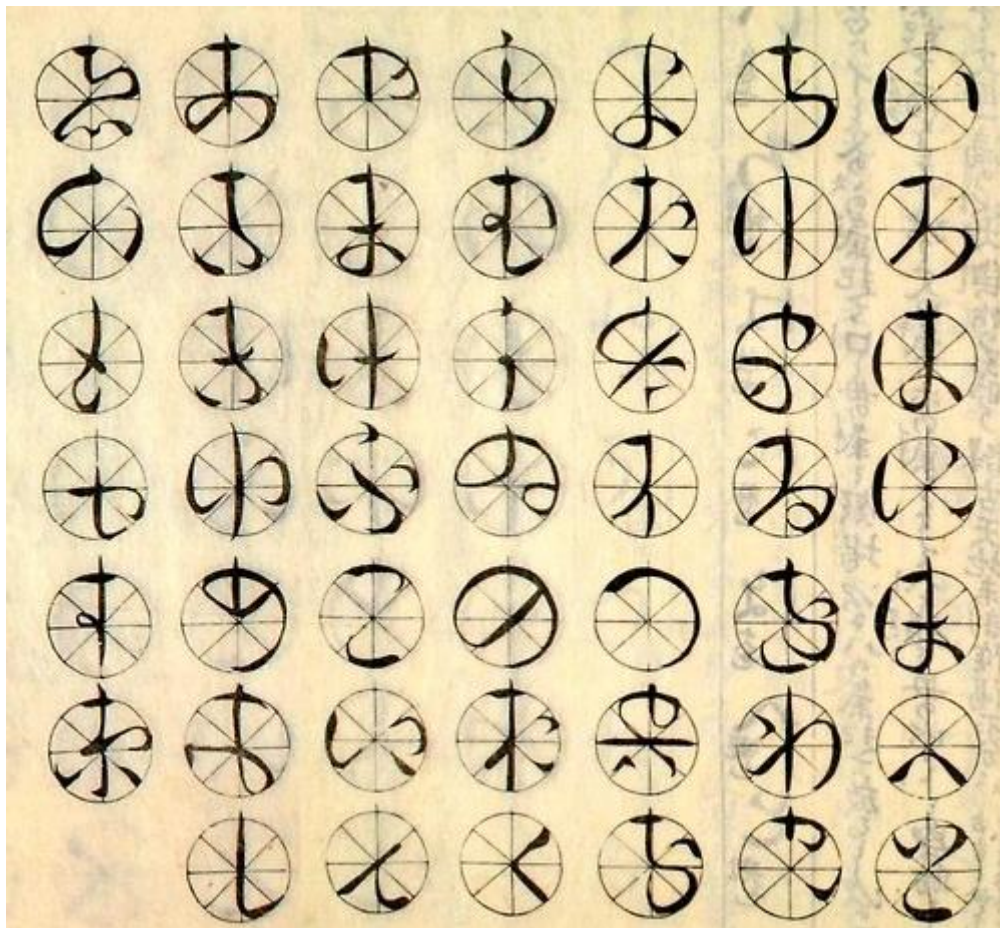 いろはにほへと
ちりぬるをわか
よたれそつねな
らむうゐのおく
やまけふこえて
あさきゆめみし
ゑひもせす京